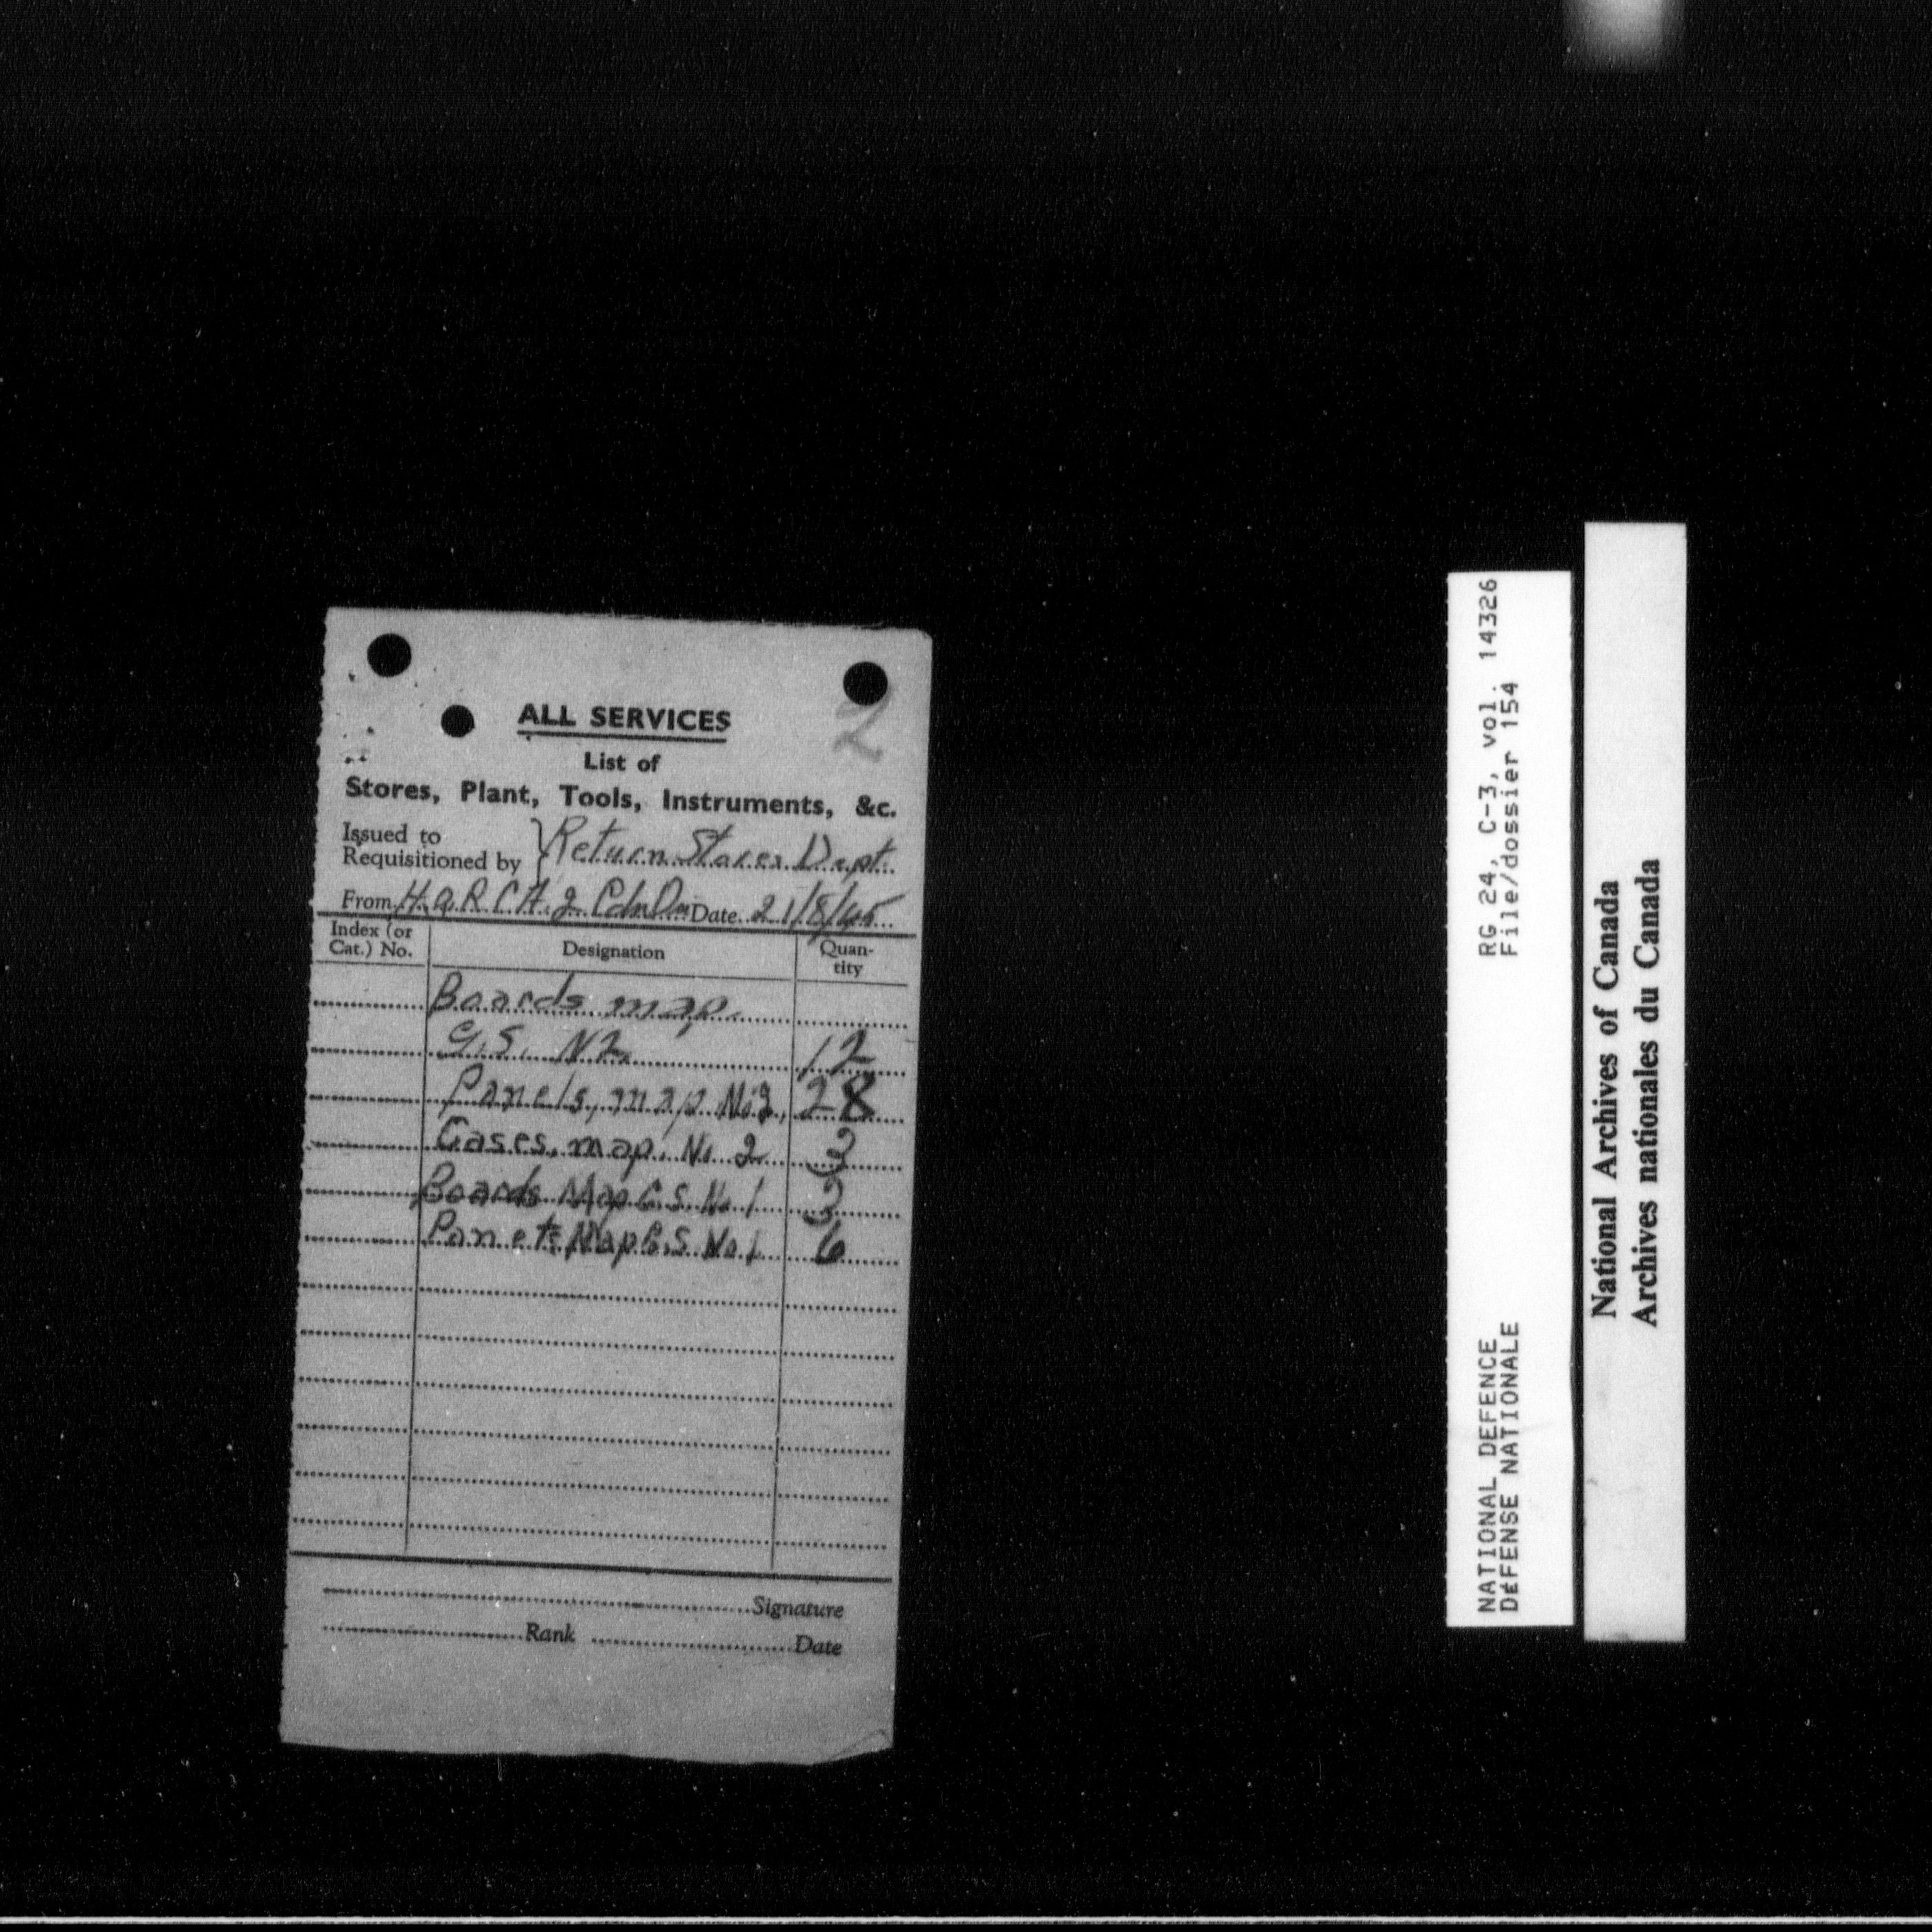 2
ALL SERVICES
List of
Stores, Plant, Tools, Instruments, &c.
Issued to
Requisitioned by } Return Stores Dept.
From H.Q.R.C.A. 2 Cdn Div Date 21/8/45
Index (or Cat.) No. Designation Quantity
Boards map
G.S. N2. 12
Panels, map No 2, 28
Cases, map, No 2 3
Boards Map G.S. No 1 3
Panels Map G.S No 1 6
Signature
Rank Date
RG 24, C-3, vol. 14326
File/dossier 154
NATIONAL DEFENCE
DÉFENSE NATIONALE
National Archives of Canada
Archives nationales du Canada